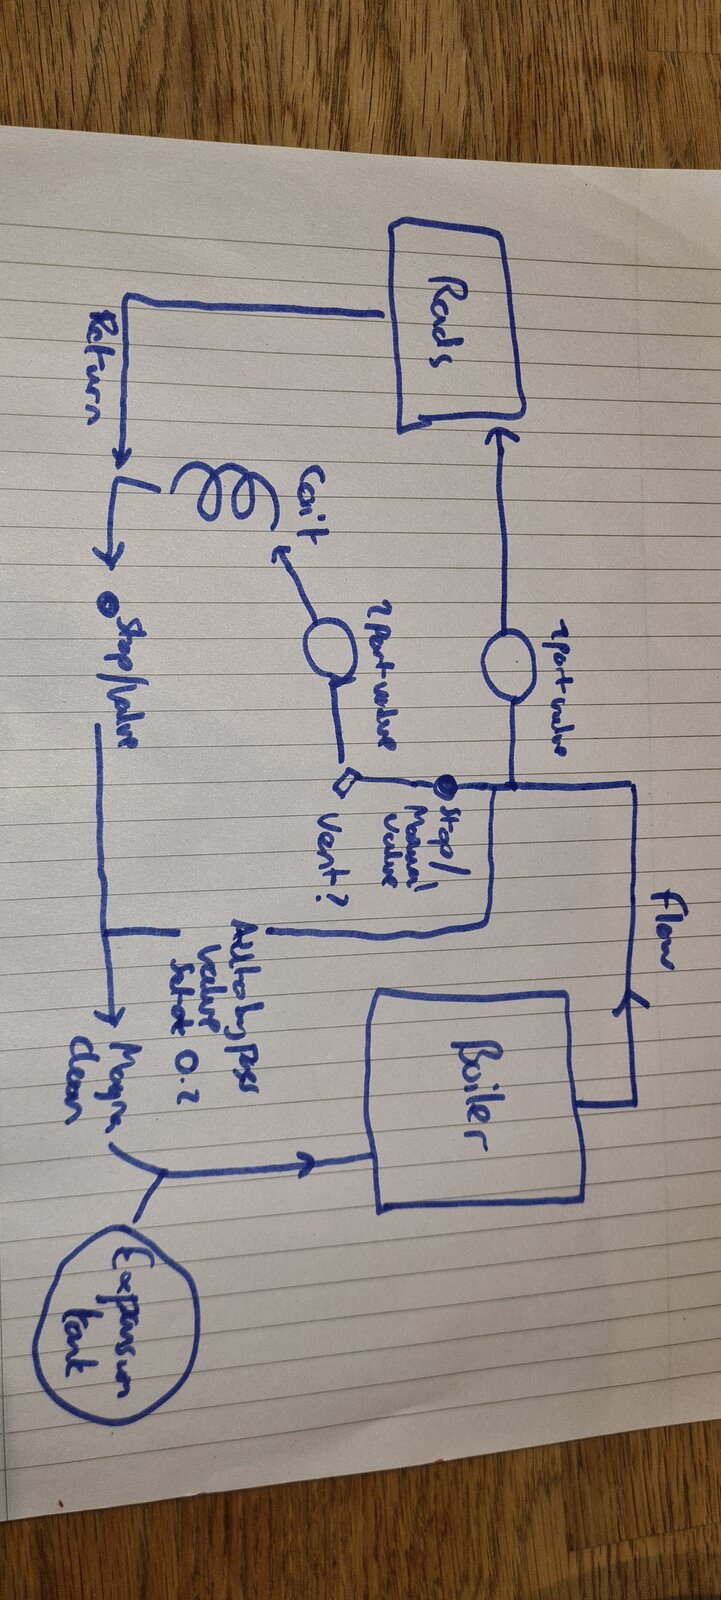 Rads
2 Port valve
Flow
Coil
2 Port valve
Stop/
Manual
valve
Vent?
Return
Stop/valve
Auto bypass
valve
Set at 0.2
Boiler
Magna
clean
Expansion
tank